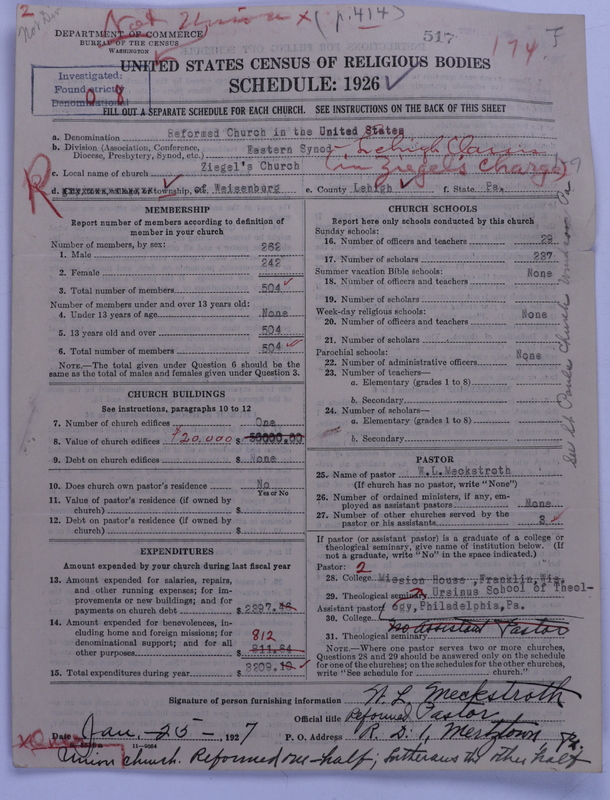 2
Not Union x (p. 414)
517
174
F
DEPARTMENT OF COMMERCE
BUREAU OF THE CENSUS
WASHINGTON
UNITED STATES CENSUS OF RELIGIOUS BODIES
SCHEDULE: 1926
Investigated:
Found strictly
Denominational
0 8
FILL OUT A SEPARATE SCHEDULE FOR EACH CHURCH. SEE INSTRUCTIONS ON THE BACK OF THIS SHEET
a. Denomination Reformed Church in the United States
b. Division (Association, Conference, Diocese, Presbytery, Synod, etc.) Eastern Synod - Lehigh Classis
c. Local name of church Ziegel's Church (in Ziegel's Charge)
R
d. township, of Weisenburg e. County Lehigh f. State Pa.
MEMBERSHIP
Report number of members according to definition of
member in your church
Number of members, by sex:
1. Male 262
2. Female 242
3. Total number of members 504
Number of members under and over 13 years old:
4. Under 13 years of age None
5. 13 years old and over 504
6. Total number of members 504
NOTE.—The total given under Question 6 should be
same as the total of males and females given under Question 3.
CHURCH BUILDINGS
See instructions, paragraphs 10 to 12
7. Number of church edifices One
8. Value of church edifices $20,000 $ 50000.00
9. Debt on church edifices $ None
10. Does church own pastor's residence? No
Yes or No
11. Value of pastor's residence (if owned by
church) $
12. Debt on pastor's residence (if owned by
church) $
EXPENDITURES
Amount expended by your church during last fiscal year
13. Amount expended for salaries, repairs,
and other running expenses; for im-
provements or new buildings; and for
payments on church debt $ 2397.
14. Amount expended for benevolences,
including home and foreign missions; for
denominational support; and for all
other purposes 812 $ 811.64
15. Total expenditures during year $ 3209.
CHURCH SCHOOLS
Report here only schools conducted by this church
Sunday schools:
16. Number of officers and teachers 29
17. Number of scholars 237
Summer vacation Bible schools:
18. Number of officers and teachers None
19. Number of scholars
Week-day religious schools:
20. Number of officers and teachers None
21. Number of scholars
Parochial schools:
22. Number of administrative officers None
23. Number of teachers—
a. Elementary (grades 1 to 8)
b. Secondary
24. Number of scholars—
a. Elementary (grades 1 to 8)
b. Secondary
PASTOR
25. Name of pastor W.L.Meckstroth
(If church has no pastor, write "None")
26. Number of ordained ministers, if any, em-
ployed as assistant pastors None
27. Number of other churches served by the
pastor or his assistants 3
If pastor (or assistant pastor) is a graduate of a college or
theological seminary, give name of institution below. (If
not a graduate, write "No" in the space indicated.)
Pastor: 2
28. College Mission House ,Franklin,Wis.
29. Theological seminary Ursinus School of Theol-
Assistant pastor: ogy,Philadelphia,Pa.
30. College
31. Theological seminary No assistant Pastor
NOTE.—Where one pastor serves two or more churches,
Questions 28 and 29 should be answered only on the schedule
for one of the churches; on the schedules for the other churches,
write "See schedule for church."
Signature of person furnishing information W. L. Meckstroth
Official title Reformed Pastor
Date Jan. 25 - , 1927 P. O. Address R. D. 1, Mertztown, Pa.
11—9084
Union church. Reformed one-half; Lutherans the other half